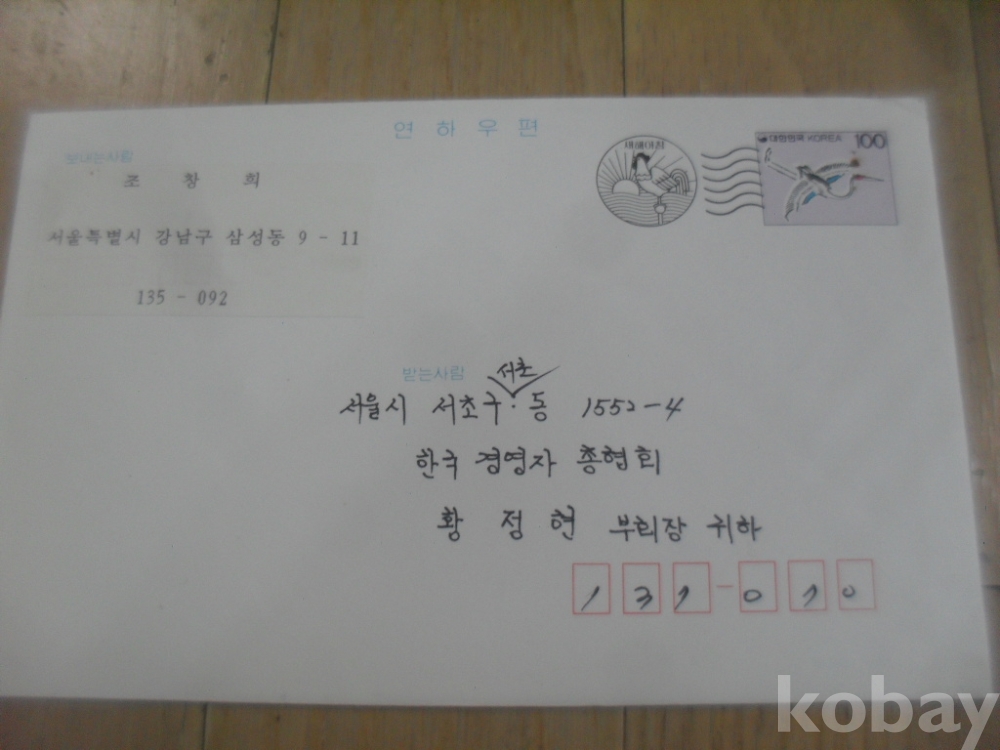 연하우편
새해아침
대한민국 KOREA 100
보내는사람
조 창 희
서울특별시 강남구 삼성동 9 - 11
135 - 092
받는사람
서초
서울시 서초구 동 1552-4
한국 경영자 총협회
황 정 현 부회장 귀하
131-010
kobay